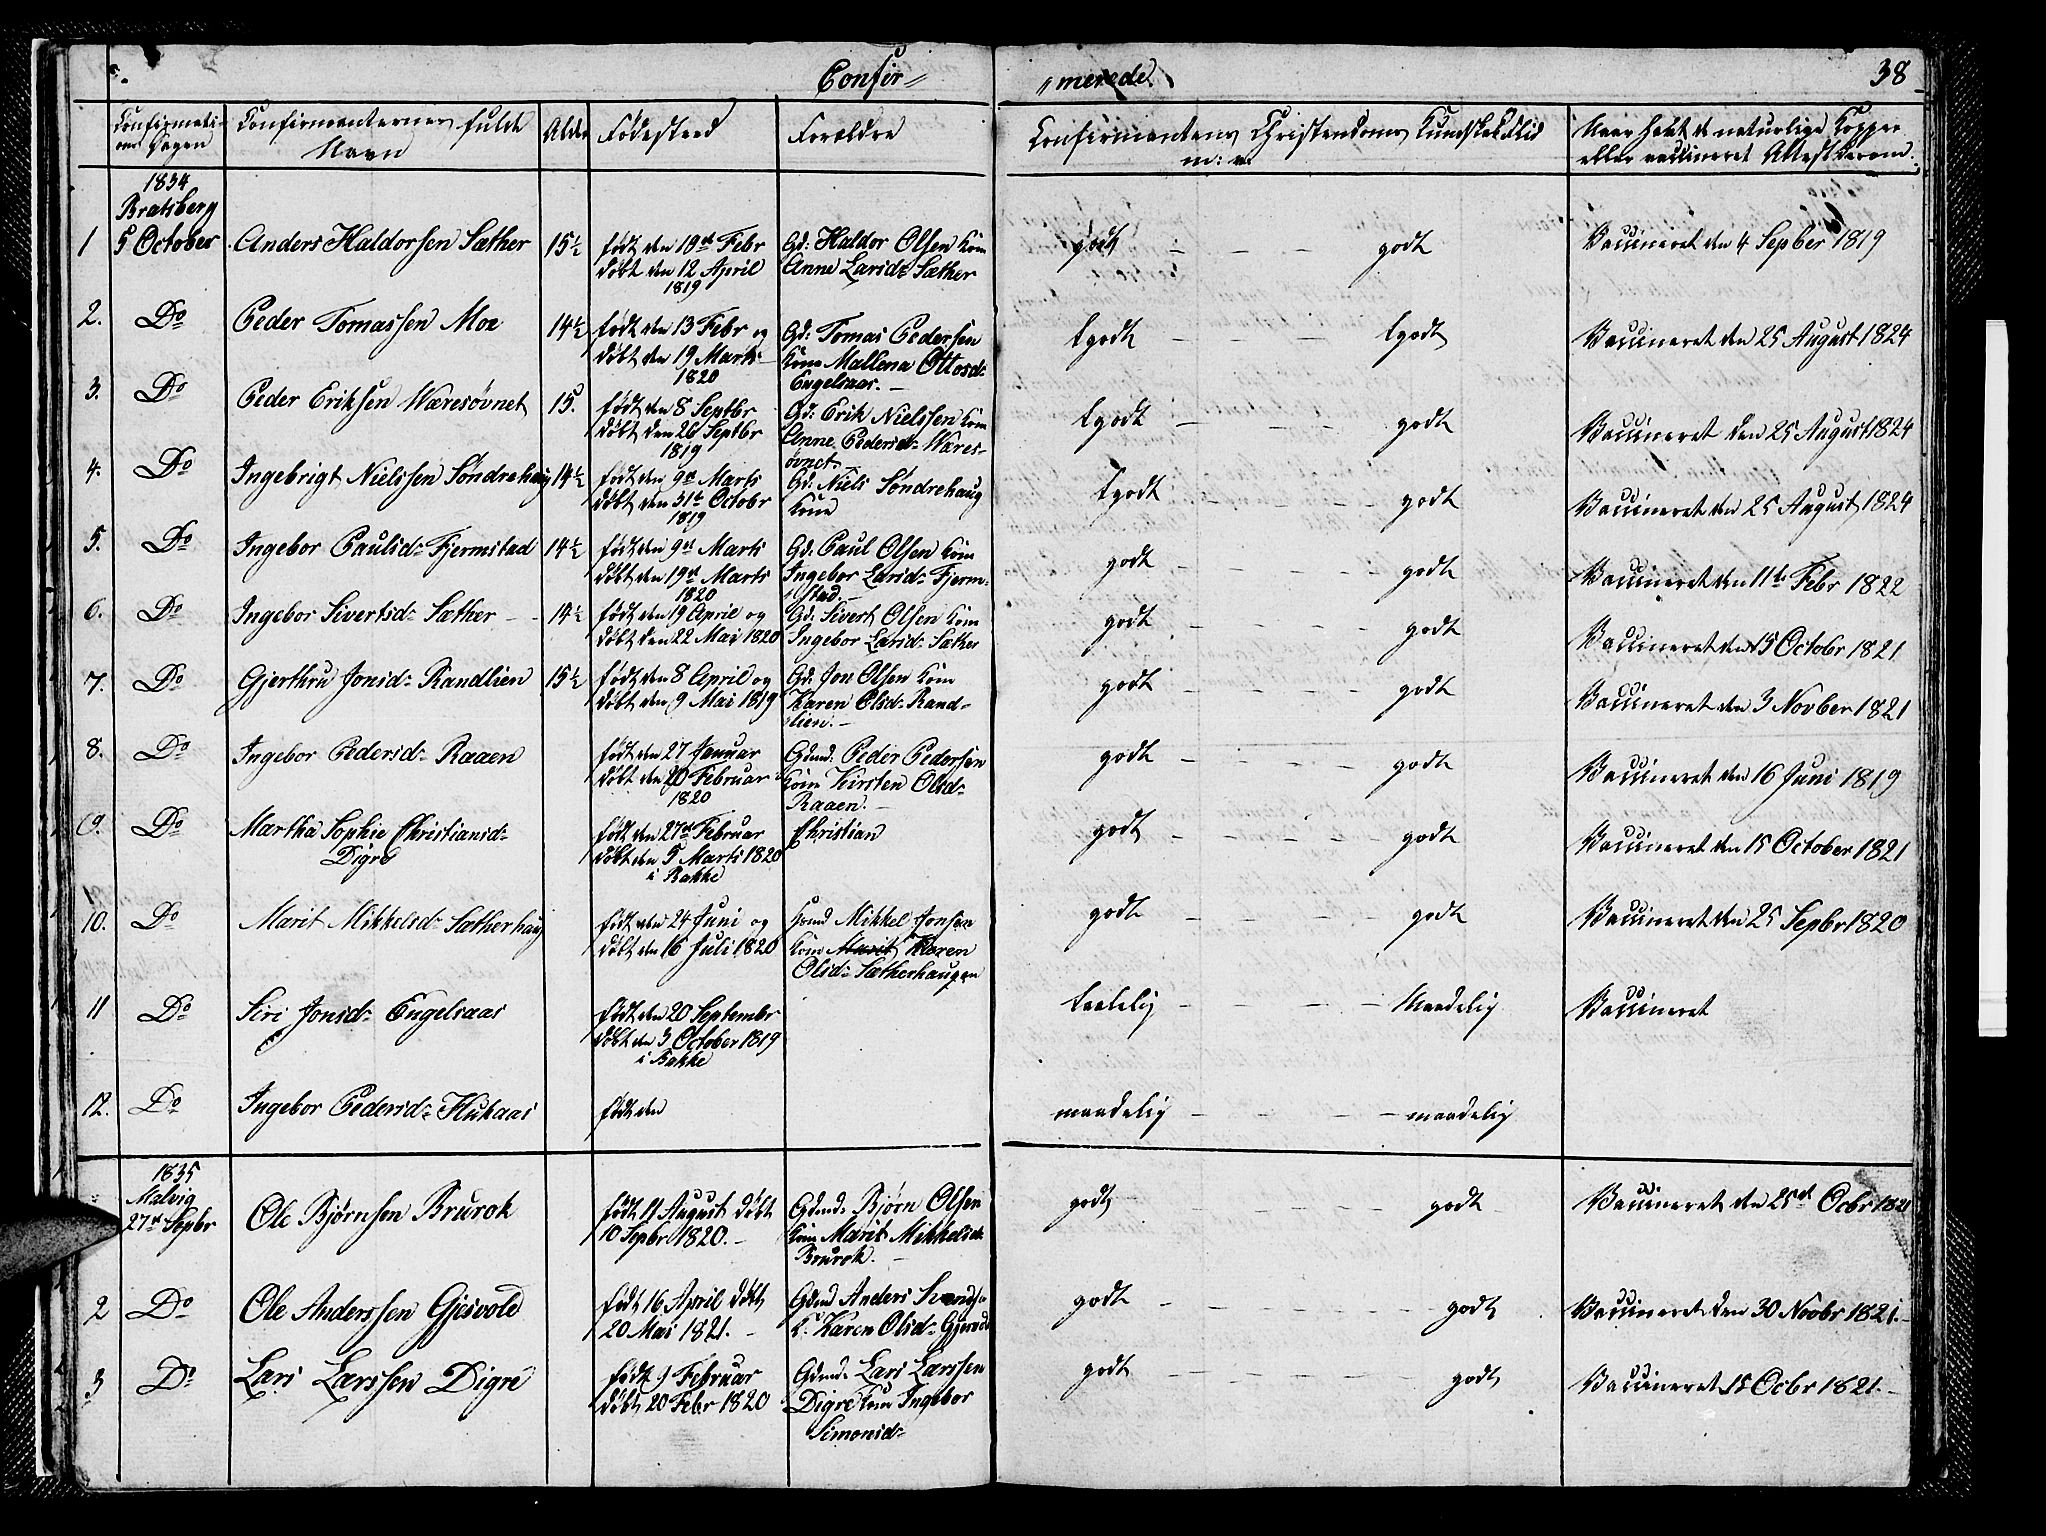 Confir„
„merede.
38
Confirmati-
ons Dagen
Confirmanternes fulde
Navn
Alder
Fødested
Forældre
Confirmantens Christendoms Kundskab Flid
m: v.
Naar havt de naturlige Kopper
eller vaccineret Attest derom.
1834
Bratsberg
1 5 October Anders Haldorsen Sæther 15½ født den 19de Febr Gd: Haldor Olsen kone godt - - - - godt Vaccineret den 4 Sepber 1819
døbt den 12 April Anne Larsd: Sæther
1819
2. Do Peder Tomassen Moe 14½ født den 13 Febr og Gd: Tomas Pedersen tgodt - - - - tgodt Vaccineret den 25 August 1824
døbt den 19 Marts kone Mallena Ottosd:
1820 Engelsaas. -
3. Do Peder Eriksen Wæresøvnet 15. født den 8 Septbr Gd: Erik Nielssen kone tgodt - - - - godt Vaccineret den 25 August 1824
døbt den 26 Septbr Anne Pedersd: Wæres-
1819 øvnet.
4. Do Ingebrigt Nielssen Søndrehaug 14½ født den 9de Marts Gd: Niels Søndrehaug tgodt - - - - godt Vaccineret den 25 August 1824
døbt den 31te Octobr kone
1819
5. Do Ingebor Paulsd: Fjermstad 14½ født den 9de Marts Gd: Paul Olsen kone godt - - - - godt Vaccineret den 11te Febr 1822
døbt den 19de Marts Ingebor Larsd: Fjerm-
1820 stad. -
6. Do Ingebor Sivertsd: Sæther - - 14½ født den 19 April og Gd: Sivert Olsen kone godt - - - - godt Vaccineret den 15 Octobr 1821
døbt den 22 Mai 1820 Ingebor Larsd: Sæther
7. Do Gjerthru Jonsd: Randlien 15½ født den 8 April og Gd: Jon Olsen kone godt - - - - godt Vaccineret den 3 Novber 1821
døbt den 9 Mai 1819 Karen Olsd: Rand-
lien. -
8. Do Ingebor Pedersd: Raaen født den 27 Januar Gdmd: Peder Pedersen godt - - - - godt Vaccineret den 16 Juni 1819
døbt den 20 Februar kone Kirsten Olsd:
1820 Raaen. -
9. Do Martha Sophie Christiansd: født den 27de Februar Christian godt - - - - godt Vaccineret den 15 October 1821
Digre døbt den 5 Marts 1820
i Bakke
10. Do Marit Mikkelsd: Sætherhaug født den 24 Juni og Hmd Mikkel Jonsen godt - - - - godt Vaccineret den 25 Sepbr 1820
døbt den 16 Juli 1820 kone Marit Karen
Olsd: Sætherhaugen
11 Do Siri Jonsd: Engelsaas født den 20 Septembr taalelig - - - - Maadelig Vaccineret
døbt den 3 October 1819
i Bakke
12. Do Ingebor Pedersd: Hukaas født den maadelig - - - - maadelig
1835
Malvig
27de Sepbr Ole Bjørnsen Brurok født 11 August døbt Gdmd: Bjørn Olsen godt - - - - godt Vaccineret den 25de Ocbr 1821
10 Sepbr 1820. - kone Marit Mikkelsd:
Brurok. -
2 Do Ole Anderssen Gjesvold født 16 April døbt Gdmd Anders Svends. godt - - - - godt Vaccineret den 30 Novbr 1821. -
20 Mai 1821. - K. Karen Olsd:
3 Do Lars Larssen Digre født 9 Februar Gdmd: Lars Larssen godt - - - - godt Vaccineret 15 Ocbr 1821. -
døbt 20 Febr 1820 Digre kone Ingebor
Simonsd: